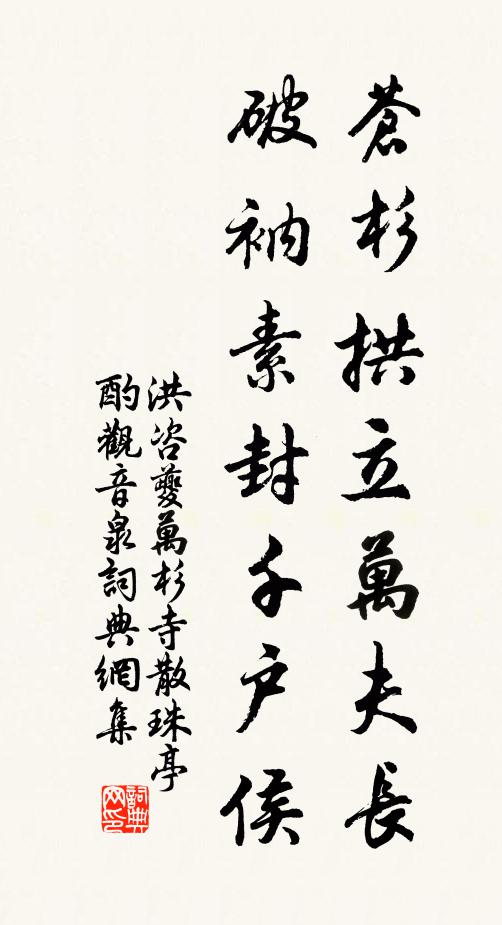 蒼杉拱立萬夫長
破衲素封千户侯
洪咨夔萬杉寺散珠亭
酌觀音泉詞典網集
詞典网印